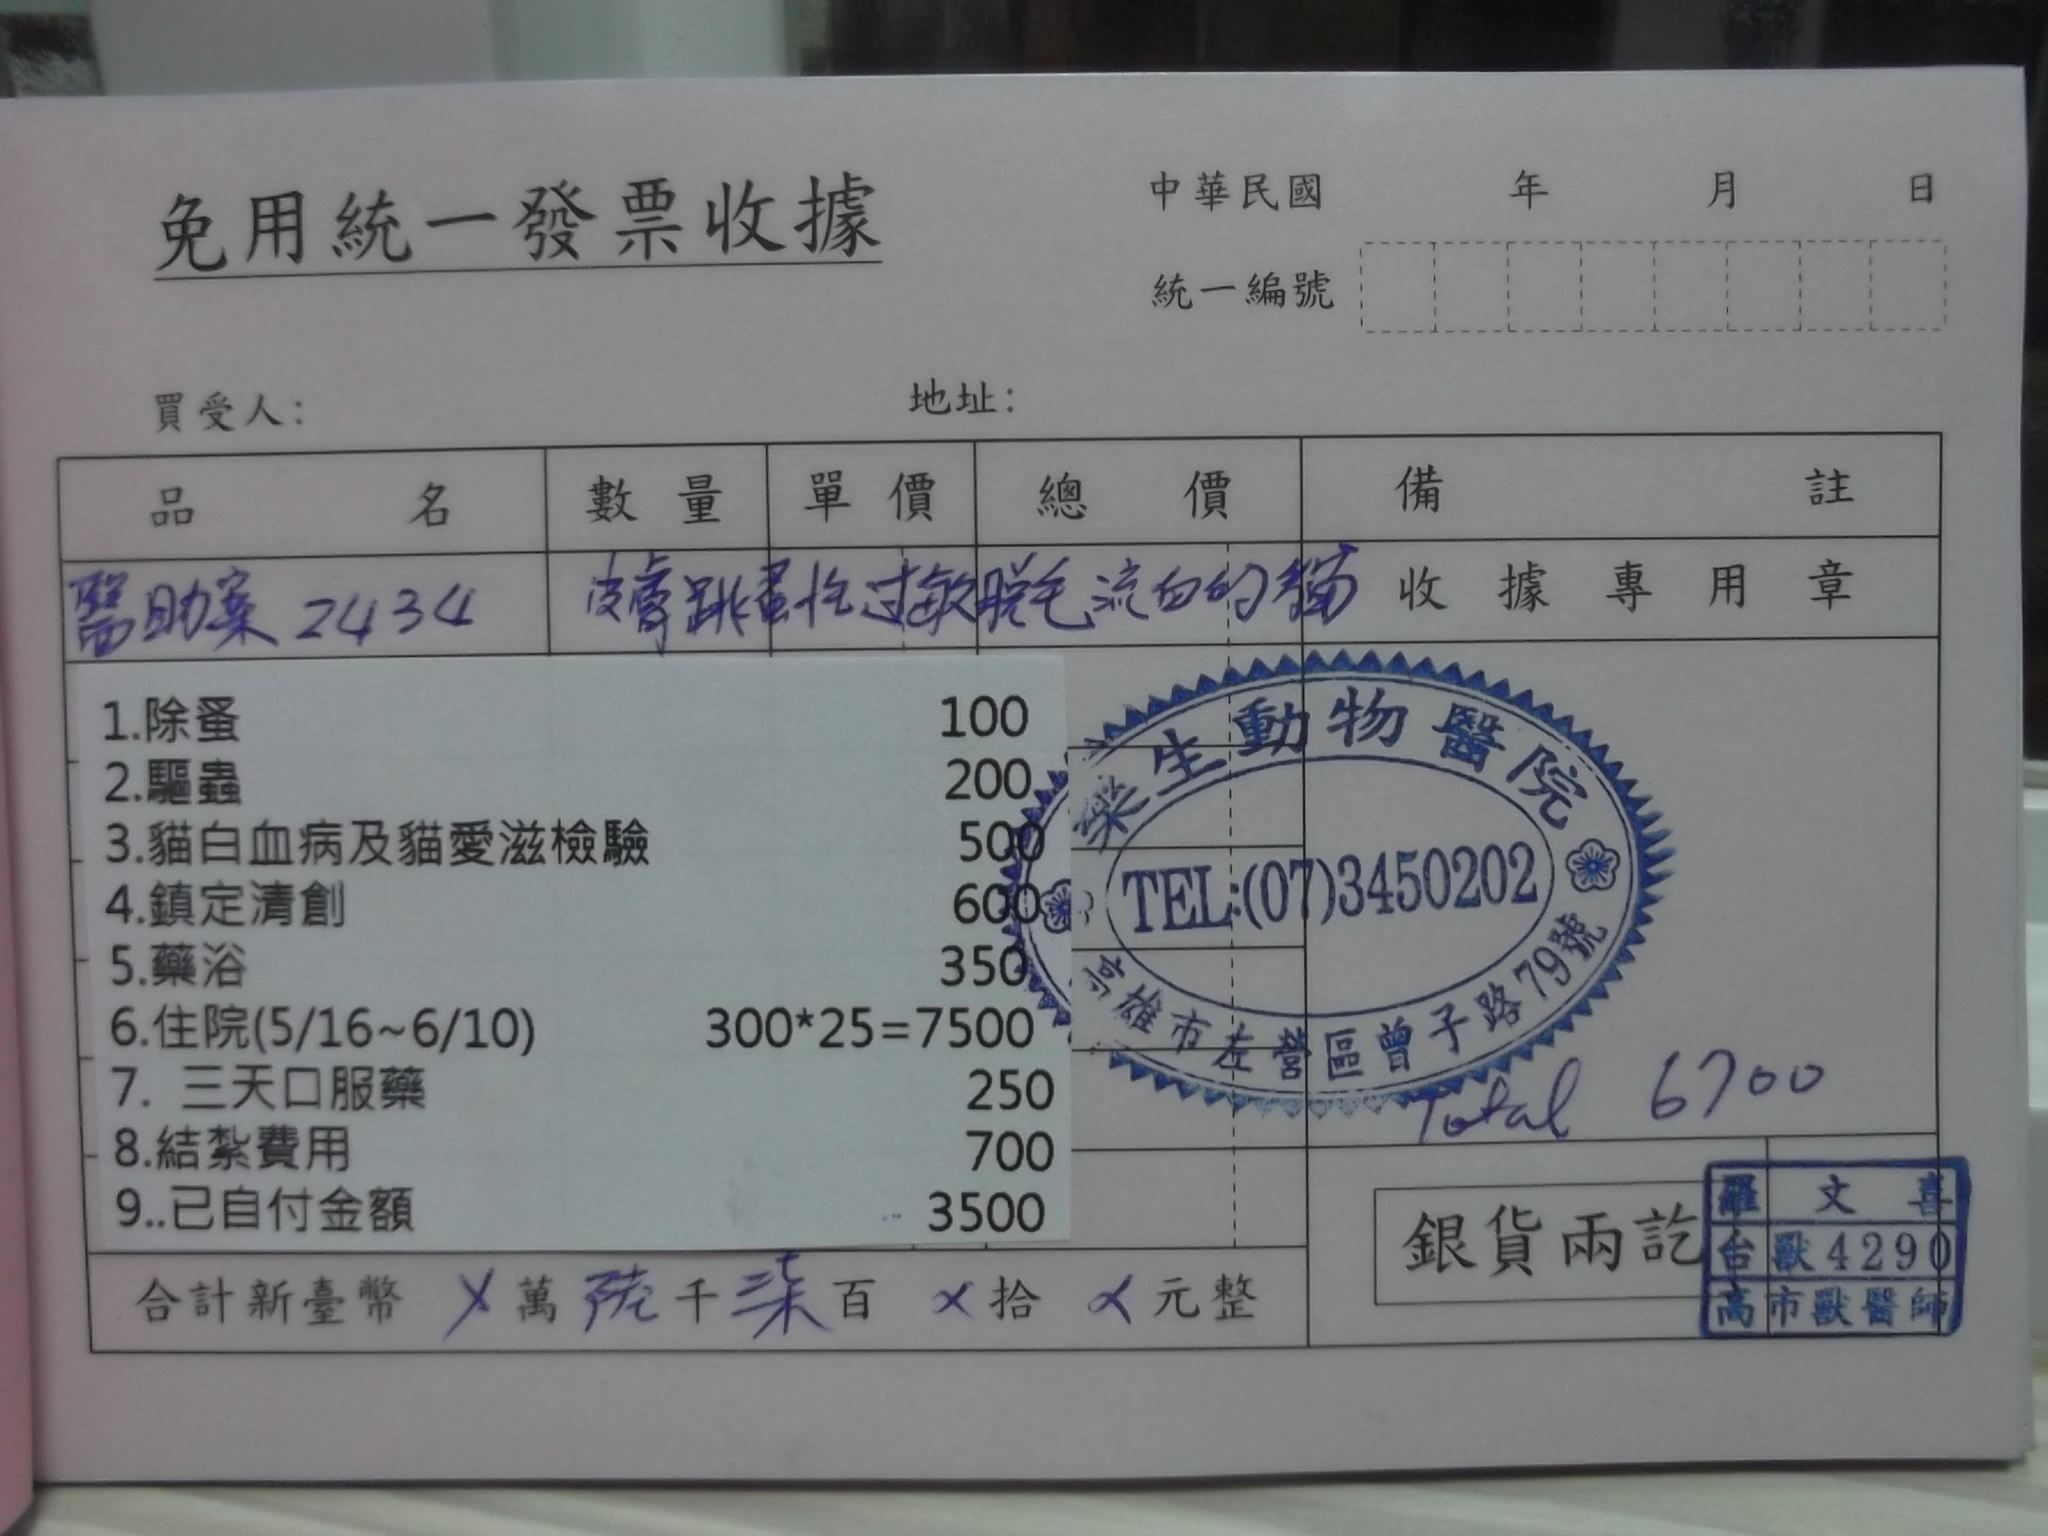 免用統一發票收據
中華民國 年 月 日
統一編號
買受人： 地址：
品名 數量 單價 總價 備註
醫助案 2434 皮膚跳蚤性过敏脫毛流血的貓 收據專用章
1.除蚤 100
2.驅蟲 200
3.貓白血病及貓愛滋檢驗 500
4.鎮定清創 600
5.藥浴 350
6.住院(5/16~6/10) 300*25=7500
7. 三天口服藥 250
8.結紮費用 700
9..已自付金額 3500
樂生動物醫院
TEL:(07)3450202
高雄市左營區曾子路79號
Total 6700
銀貨兩訖
羅文喜
台獸4290
高市獸醫師
合計新臺幣 X萬 陸千 柒百 X拾 X元整